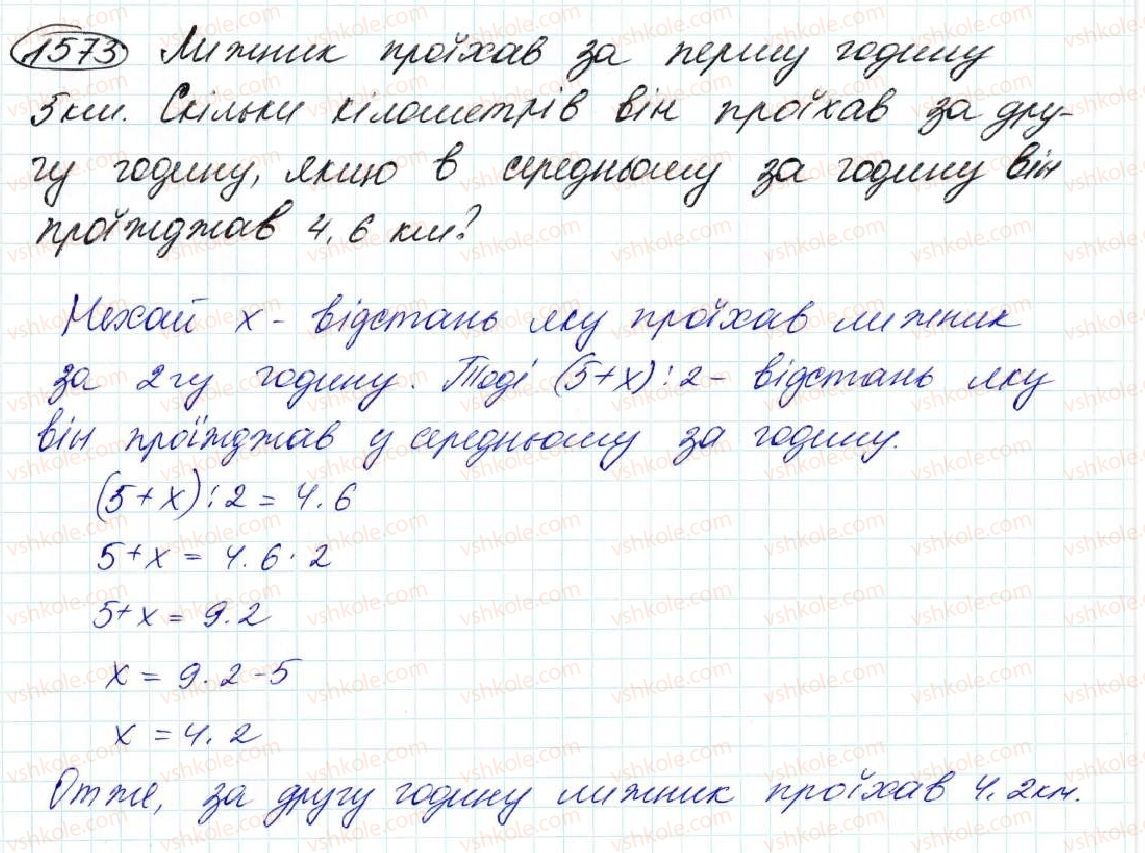 1573 Лижник проїхав за першу годину
5 км. Скільки кілометрів він проїхав за дру-
гу годину, якщо в середньому за годину він
проїжджав 4,6 км?
Нехай x - відстань яку проїхав лижник
за 2гу годину. Тоді (5+x):2 - відстань яку
він проїжджав у середньому за годину.
(5+x):2 = 4.6
5+x = 4.6 · 2
5+x = 9.2
x = 9.2-5
x = 4.2
Отже, за другу годину лижник проїхав 4.2км.